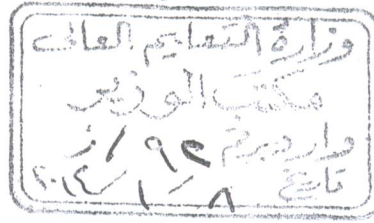 وزارة التعليم العالى
مكتب الوزير
وارد رقم
تاريخ ٨ / ١ / ٢٠١٤